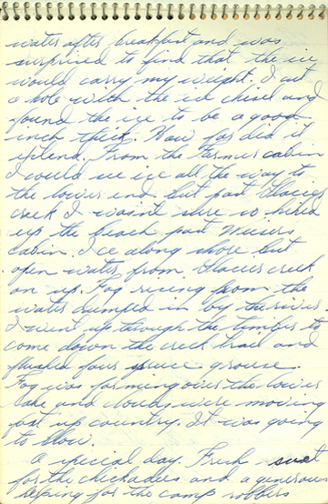 water after breakfast and was
surprised to find that the ice
would carry my weight. I cut
a hole with the ice chisel and
found the ice to be a good
inch thick. How far did it
extend. From the Farmer cabin
I could see ice all the way to
the lower end but past Glacier
creek I wasn't sure so hiked
up the beach past cabin. Ice along shore but
open water from Glacier creek
on up. Fog rising from the
water dumped in by the river.
I went up through the timber to
come down the creek trail and
flushed four spruce grouse.
Fog was forming over the lower
lake and clouds were moving
past up country. It was going
to blow.
A special day. Fresh suet
for the chickadees and a generous
helping for the camp robbers